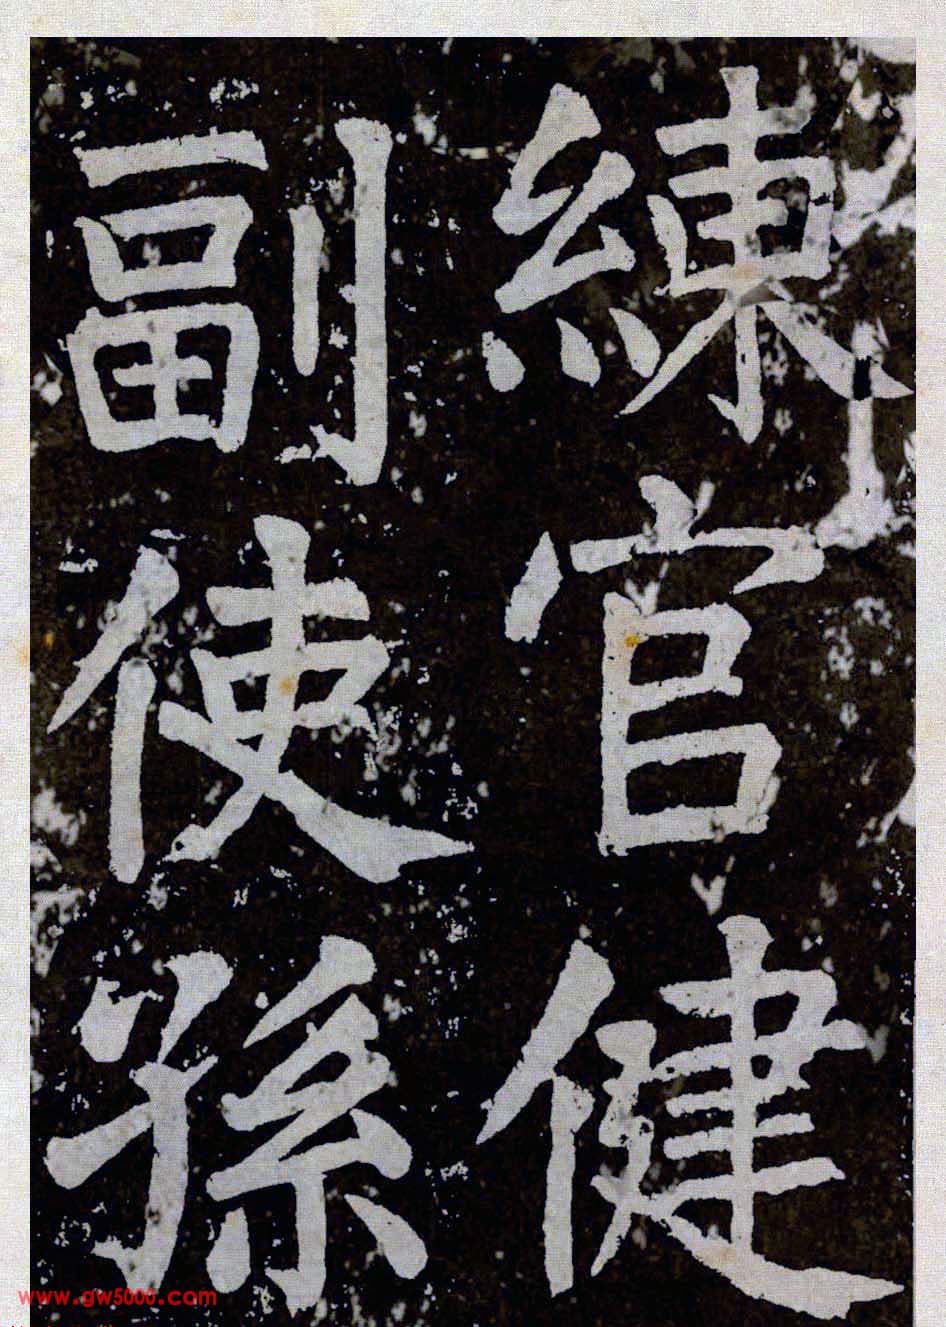 練官健
副使孫
www.gw5000.com